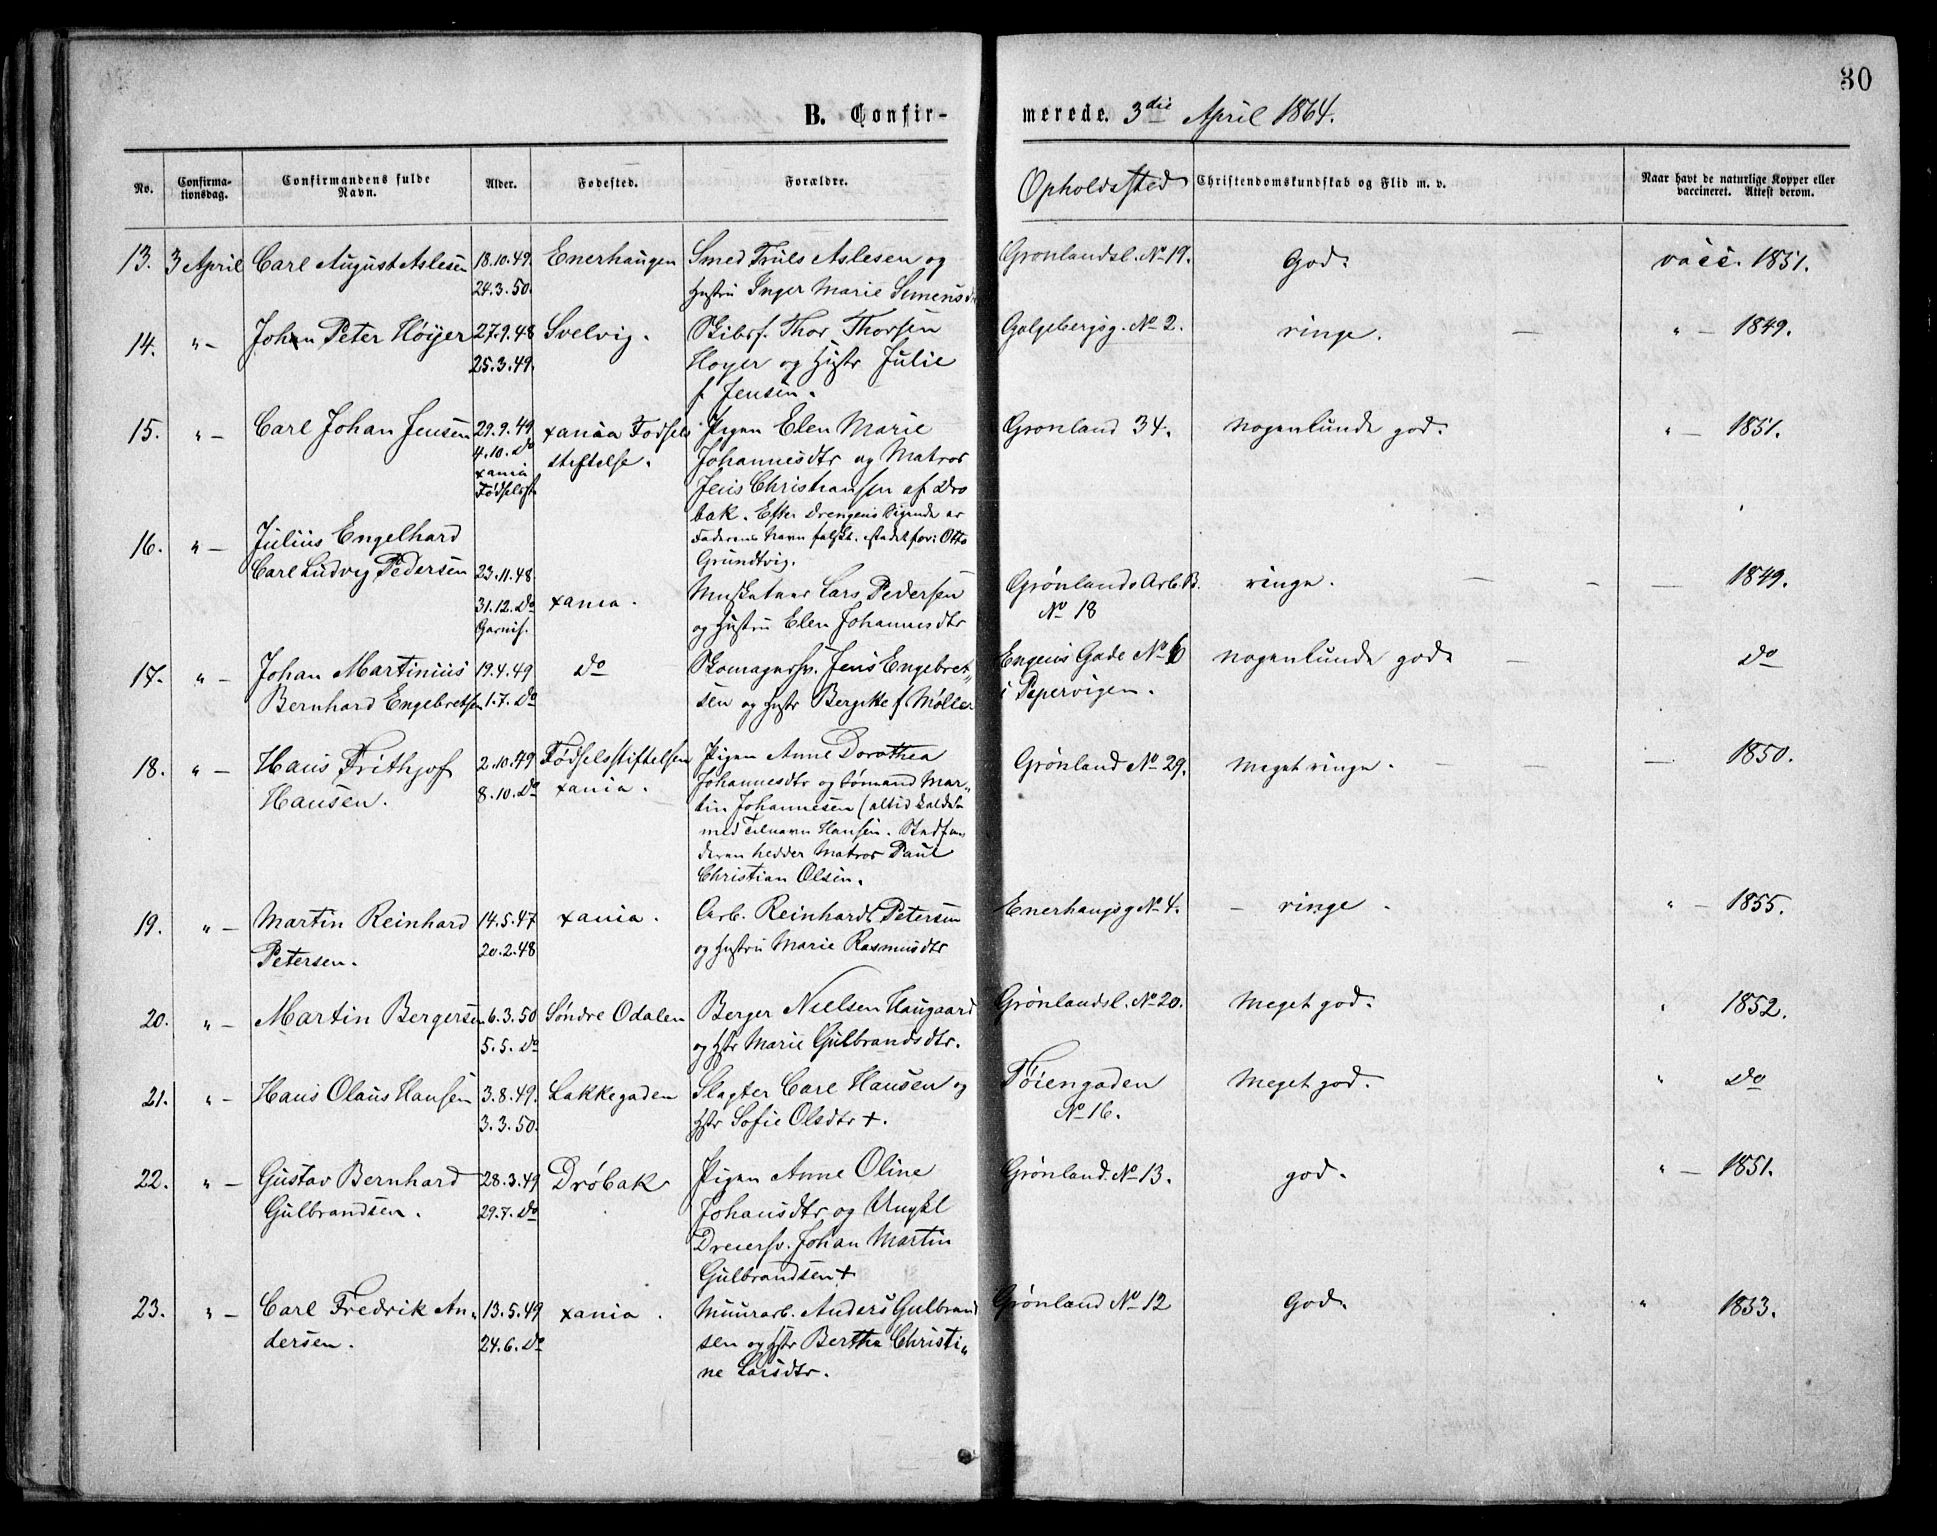 30
B. Confir-
merede. 3die April 1864.
No.
Confirma-
tionsdag.
Confirmandens fulde
Navn.
Alder.
Fødested.
Forældre.
Opholdssted
Christendomskundskab og Flid m. v.
Naar havt de naturlige Kopper eller
vaccineret. Attest derom.
13. 3 April Carl August Aslesen 18.10.49. Enerhaugen Smed Truls Aslesen og Grønlandsl. No 19. God. vacc. 1851.
24.3.50. Hustru Inger Marie Simensd
14. " — Johan Peter Höyer 27.9.48 Svelvig. Skibsf. Thor Thorsen Galgebergsg. No 2. ringe. — " — 1849.
25.3.49. Hoyer og Hustr Julie
f. Jensen.
15. " — Carl Johan Jensen 29.9.49 xania Fødsels Pigen Elen Marie Grønland 34. nogenlunde god. " — 1851.
4.10. Do stiftelse. Johannesdtr og Matros
xania
Fødselsst Jens Christiansen af Drø
bak. Efter Drengens Sigende er
16. " — Julius Engelhard Faderens Navn falskt. istedetfor: Otto
Grundtvig.
Carl Ludvig Pedersen 23.11.48. Musketeer Lars Pedersen Grønlands Arb. B. ringe. — — — 1849.
31.12. Do xania. og Hustru Elen Johannesdtr No 18
Garnis.
17. " — Johan Martinius 19.4.49 Do Skomagersv. Jens Engebret„ Engens Gade No 10 nogenlunde god. — Do
Bernhard Engebretsen 1.7. Do sen og Hustr Bergitte f Møller i Pipervigen.
18. " — Hans Frithjof 2.10.49 Fødselsstiftelsen Pigen Anne Dorothea Grønland No 29. Meget ringe. — — 1850.
Hansen. 8.10. Do xania. Johannesdtr og Sømand Mar„
tin Johannesen (altid kaldet
med Tilnavn Hansen. Stedfa„
deren hedder Matros Paul
Christian Olsen.
19. " — Martin Reinhard 14.5.47 xania. Arb. Reinhardt Petersen Enerhaugsg No 4. — ringe. " — 1855.
Petersen. 20.2.48 og Hustru Marie Rasmusdtr
20. " — Martin Bergersen 6.3.50 Søndre Odalen Berger Nielsen Haugaard Grønlandsl. No 20. Meget god. " 1852.
5.5. Do og Hstr Marie Gulbrandsdtr.
21. " — Hans Olaus Hansen 3.8.49. Lakkegaden Slagter Carl Hansen og Tøiengaden Meget god. " Do
3.3.50. Hstr Sofie Olsdtr +. No 16.
22. " — Gustav Bernhard 28.3.49 Drøbak Pigen Anne Oline Grønland No 13. god. " — 1851.
Gulbrandsen. 29.7. Do Johansdtr og Ungkl
Dreiersv. Johan Martin
Gulbrandsen +
23. " — Carl Fredrik An„ 13.5.49 xania. Muurarb. Anders Gulbrand Grønland No 12 God. " 1853.
dersen. 24.6. Do sen og Hstr Berthe Christi„
ne Larsdtr.